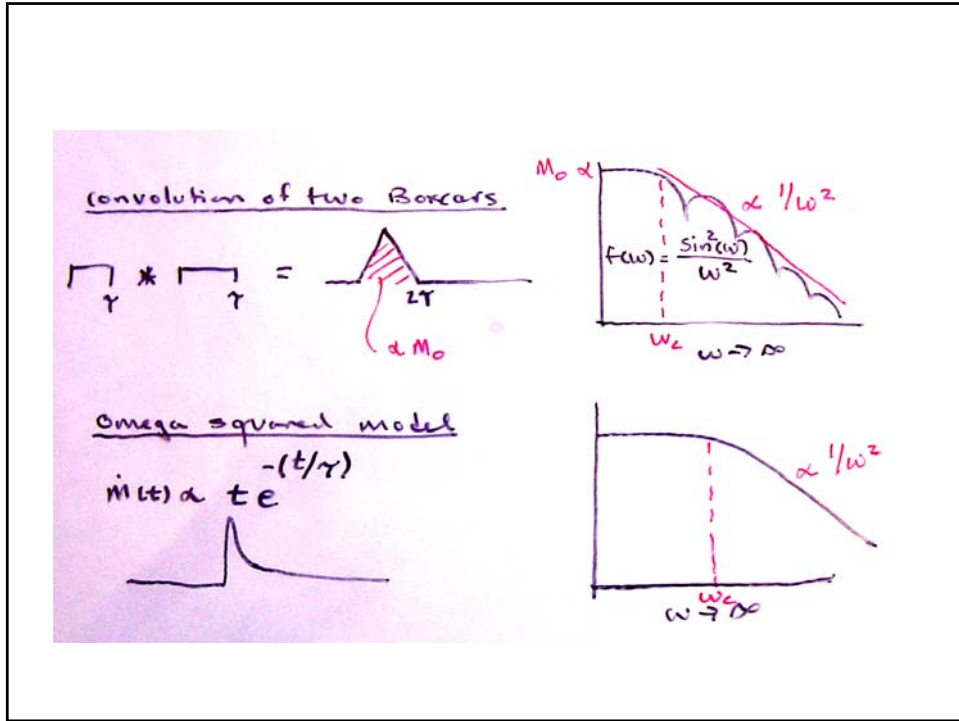 convolution of two Boxcars
τ * τ = 2τ
α M₀
M₀ α
α 1/ω²
f(ω) = sin²(ω)/ω²
ω_c
ω → ∞
Omega squared model
ṁ(t) α t e^-(t/τ)
α 1/ω²
ω_c
ω → ∞